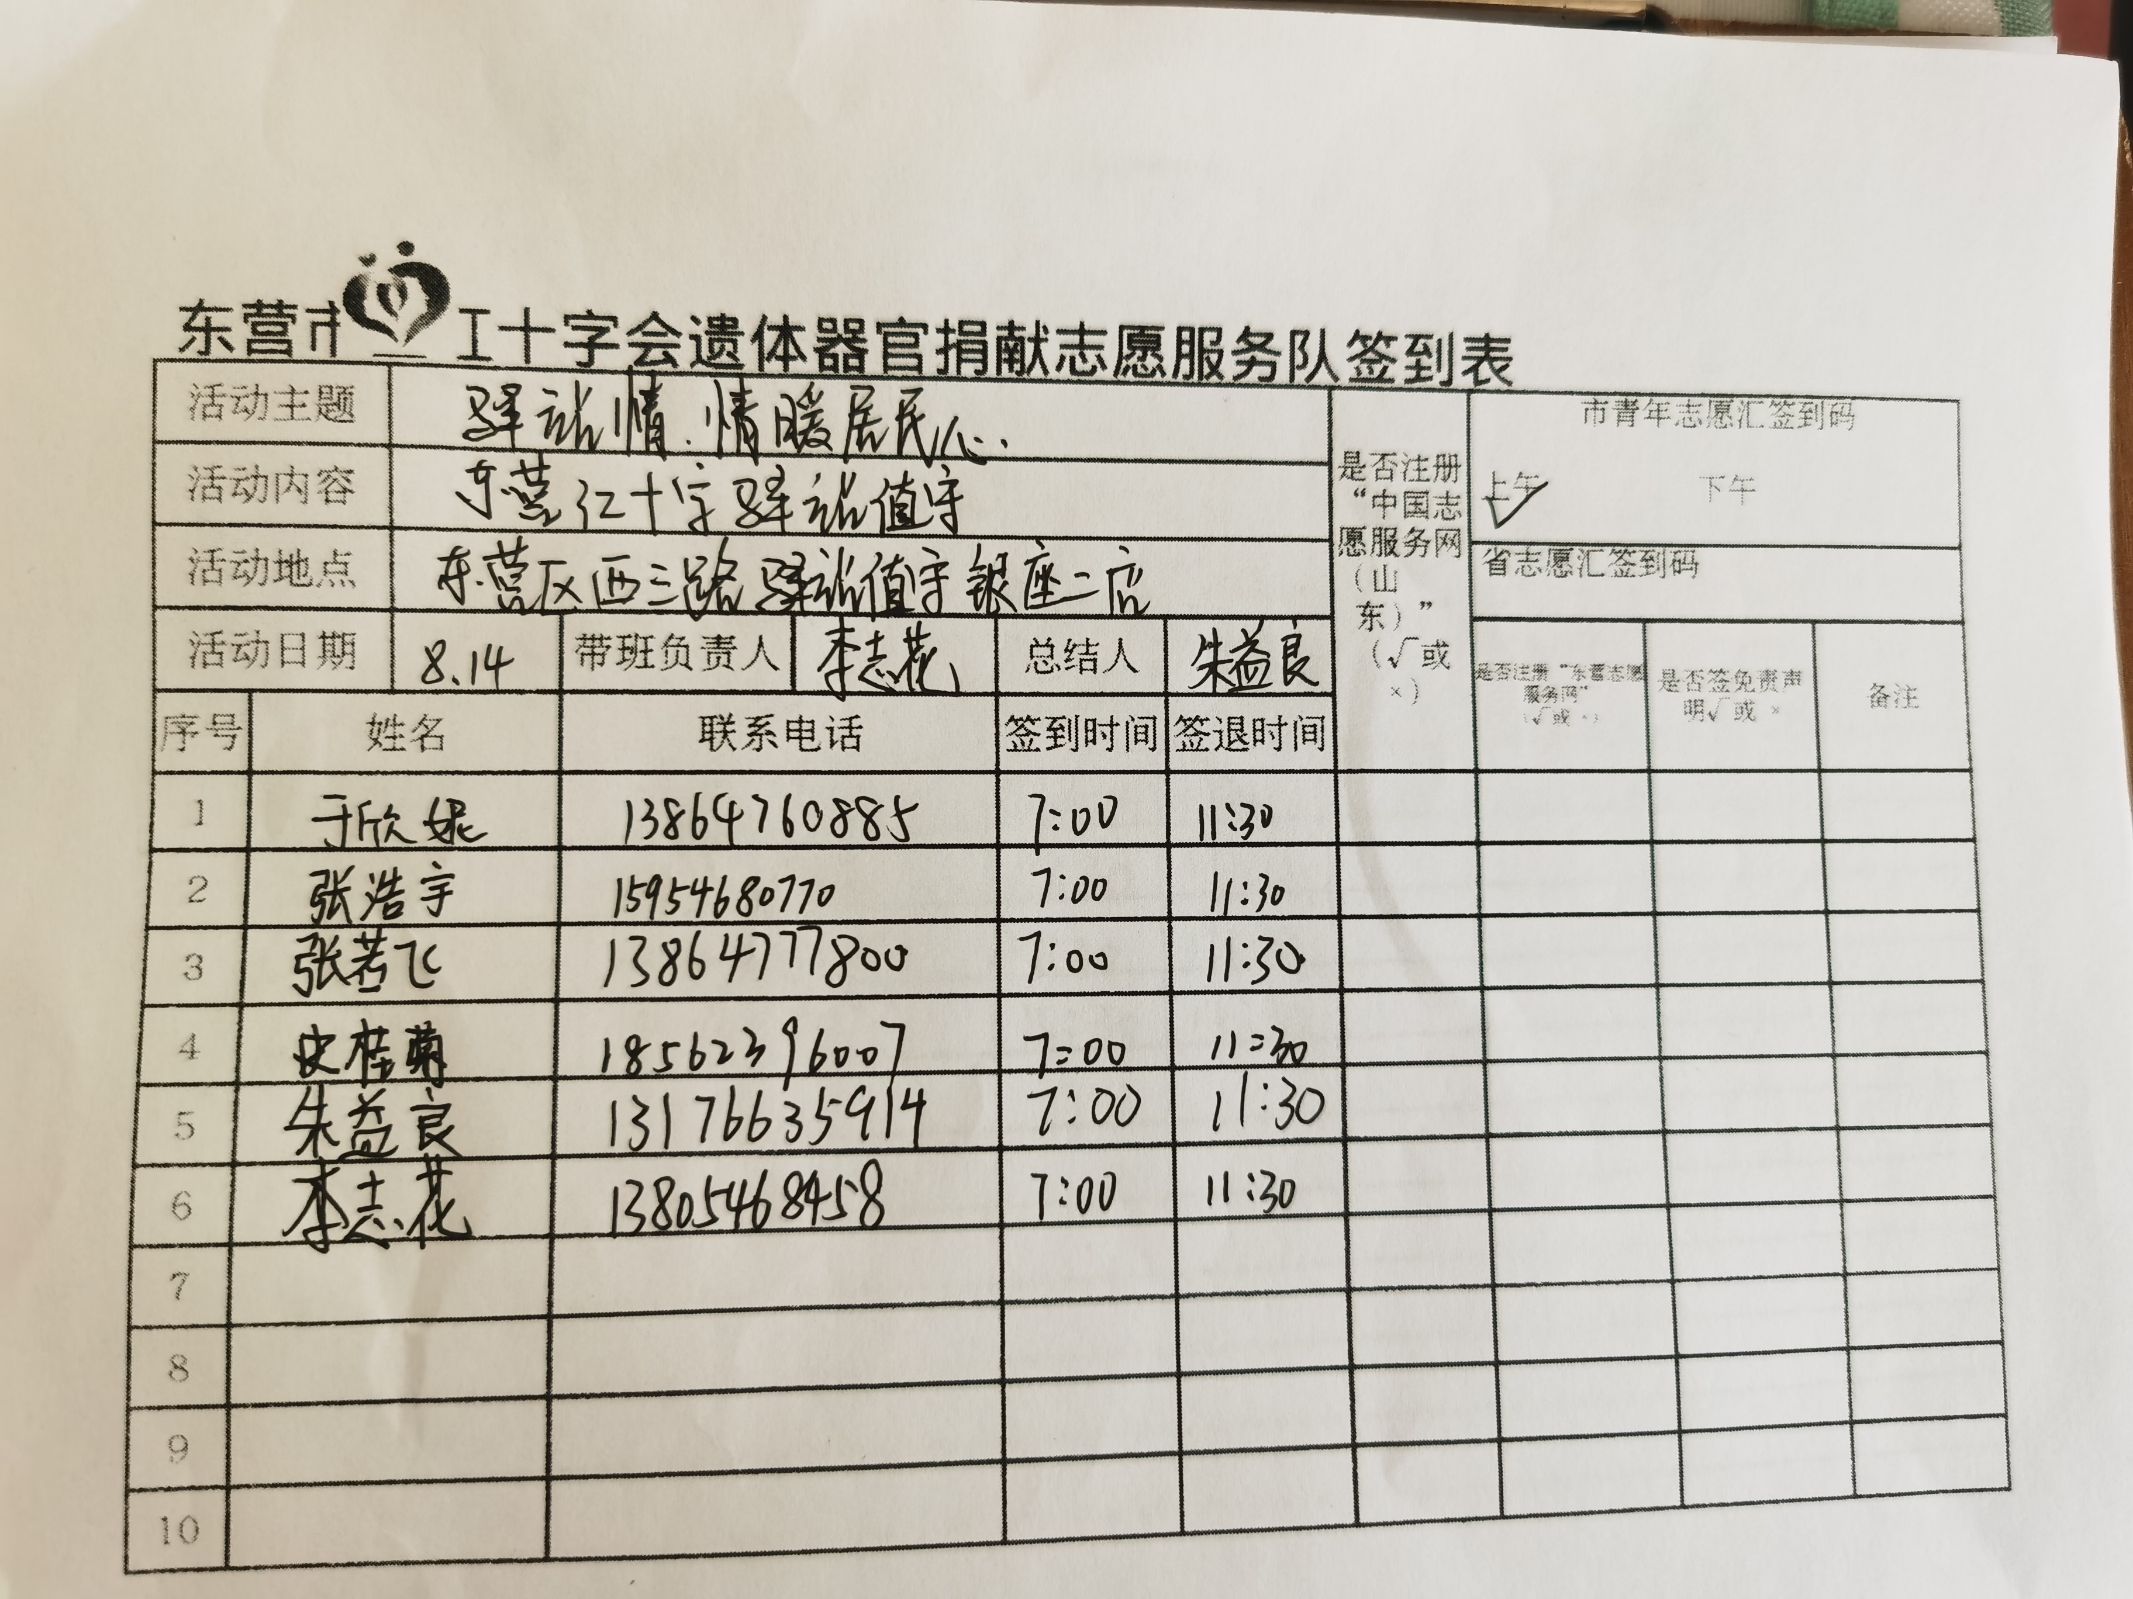 东营市红十字会遗体器官捐献志愿服务队签到表
活动主题 驿站情.情暖居民心.
活动内容 东营红十字驿站值守
活动地点 东营区西三路驿站值守银座二店
活动日期 8.14 带班负责人 李志花 总结人 朱益良
是否注册“中国志愿服务网(山东)”(√或×)
市青年志愿汇签到码
上午 ✓ 下午
省志愿汇签到码
序号 姓名 联系电话 签到时间 签退时间 是否注册“东营志愿服务网”(√或×) 是否签免责声明√或× 备注
1 于欣妮 13864760885 7:00 11:30
2 张浩宇 15954680770 7:00 11:30
3 张若飞 13864777800 7:00 11:30
4 史桂菊 18562396007 7:00 11:30
5 朱益良 13176635914 7:00 11:30
6 李志花 13805468458 7:00 11:30
7
8
9
10